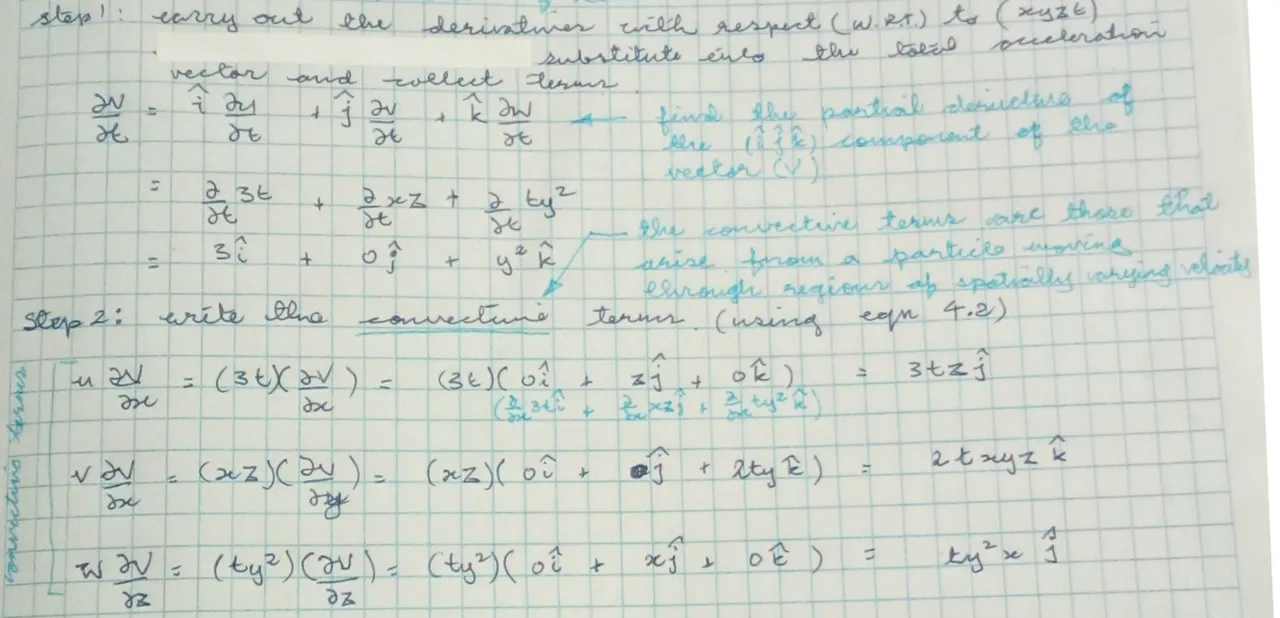 step 1: carry out the derivatives with respect (W.R.T.) to (xyzt)
substitute into the total acceleration
vector and collect terms
∂V/∂t = î ∂u/∂t + ĵ ∂v/∂t + k̂ ∂w/∂t ← find the partial derivative of
the (î ĵ k̂) component of the
vector (V)
= ∂/∂t 3t + ∂/∂t xz + ∂/∂t ty²
= 3î + 0ĵ + y² k̂
the convective terms are those that
arise from a particle moving
through regions of spatially varying velocity
step 2: write the convective terms. (using eqn 4.2)
convective terms
u ∂V/∂x = (3t)(∂V/∂x) = (3t)(0î + zĵ + 0k̂) = 3tzĵ
(∂/∂x 3tî + ∂/∂x xzĵ + ∂/∂x ty² k̂)
v ∂V/∂x = (xz)(∂V/∂y) = (xz)(0î + 0ĵ + 2ty k̂) = 2txyz k̂
w ∂V/∂z = (ty²)(∂V/∂z) = (ty²)(0î + xĵ + 0k̂) = ty²x ĵ